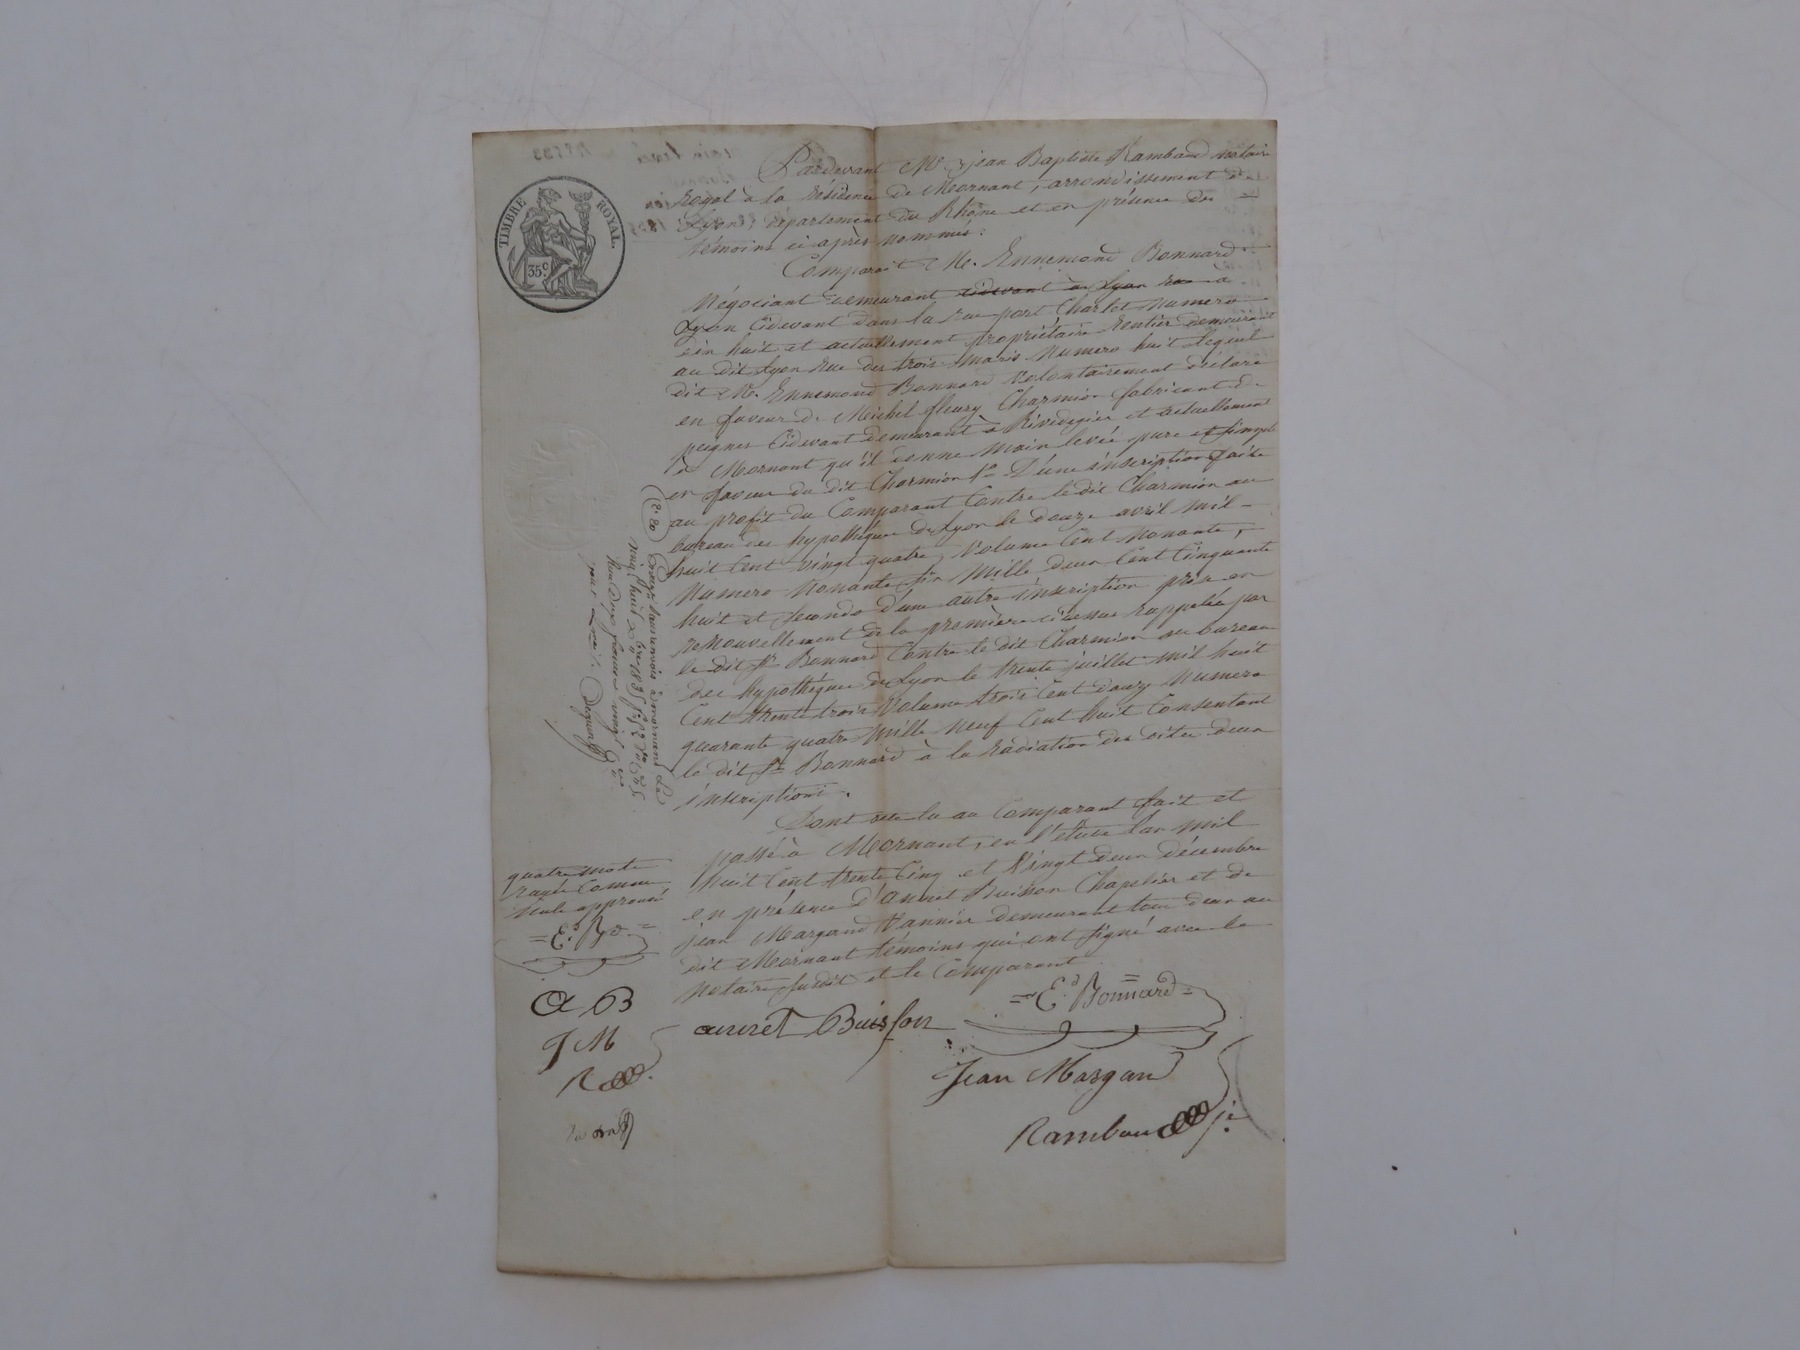 TIMBRE ROYAL.
35c.
Pardevant Me jean Baptiste Rambaud notaire
royal à la résidence de Mornant, arrondissement de
Lyon, département du Rhône et en présence des
témoins ci après nommés.
Comparait M. Ennemond Bonnard
Négociant demeurant cidevant à Lyon rue a
Lyon Cidevant dans la rue port Charlet Numero
dix huit et actuellement propriétaire Rentier demeurant
au dit Lyon Rue des trois maris Numero huit Lequel
dit M. Ennemond Bonnard Volontairement déclare
en faveur de Michel fleury Charmion fabricant de
peignes Cidevant demeurant à Rivedegier et actuellement
à Mornant qu'il donne Main levée pure et simple
en faveur du dit Charmion 1o D'une inscription faite
au profit du Comparant Contre le dit Charmion au
bureau des hypothéques de Lyon le douze avril mil
huit Cent vingt quatre, Volume Cent Nonante,
Numero Nonante six Mille deux Cent Cinquante
huit et secondo d'une autre inscription prise en
renouvellement de la première cidessus rappelée par
le dit Sr Bonnard Contre le dit Charmion au bureau
des hypothéques de Lyon le trente juillet mil huit
Cent trente trois Volume trois Cent douze Numero
quarante quatre Mille Neuf Cent huit Consentant
le dit Sr Bonnard à la Radiation des dites deux
inscriptions.
Dont acte lu au Comparant fait et
passé à Mornant, en l'étude l'an mil
huit Cent trente Cinq et Vingt deux décembre
en présence d'annet Buisson Chapelier et de
jean Margand Vannier demeurant tous deux au
dit Mornant témoins qui ont signé avec le
notaire susdit et le Comparant.
quatre mots
rayés Comme
Nuls approuvé
= Ed. Bd =
A B
J M
R
annet Buisson
= Ed Bonnard =
Jean Margand
Rambaud